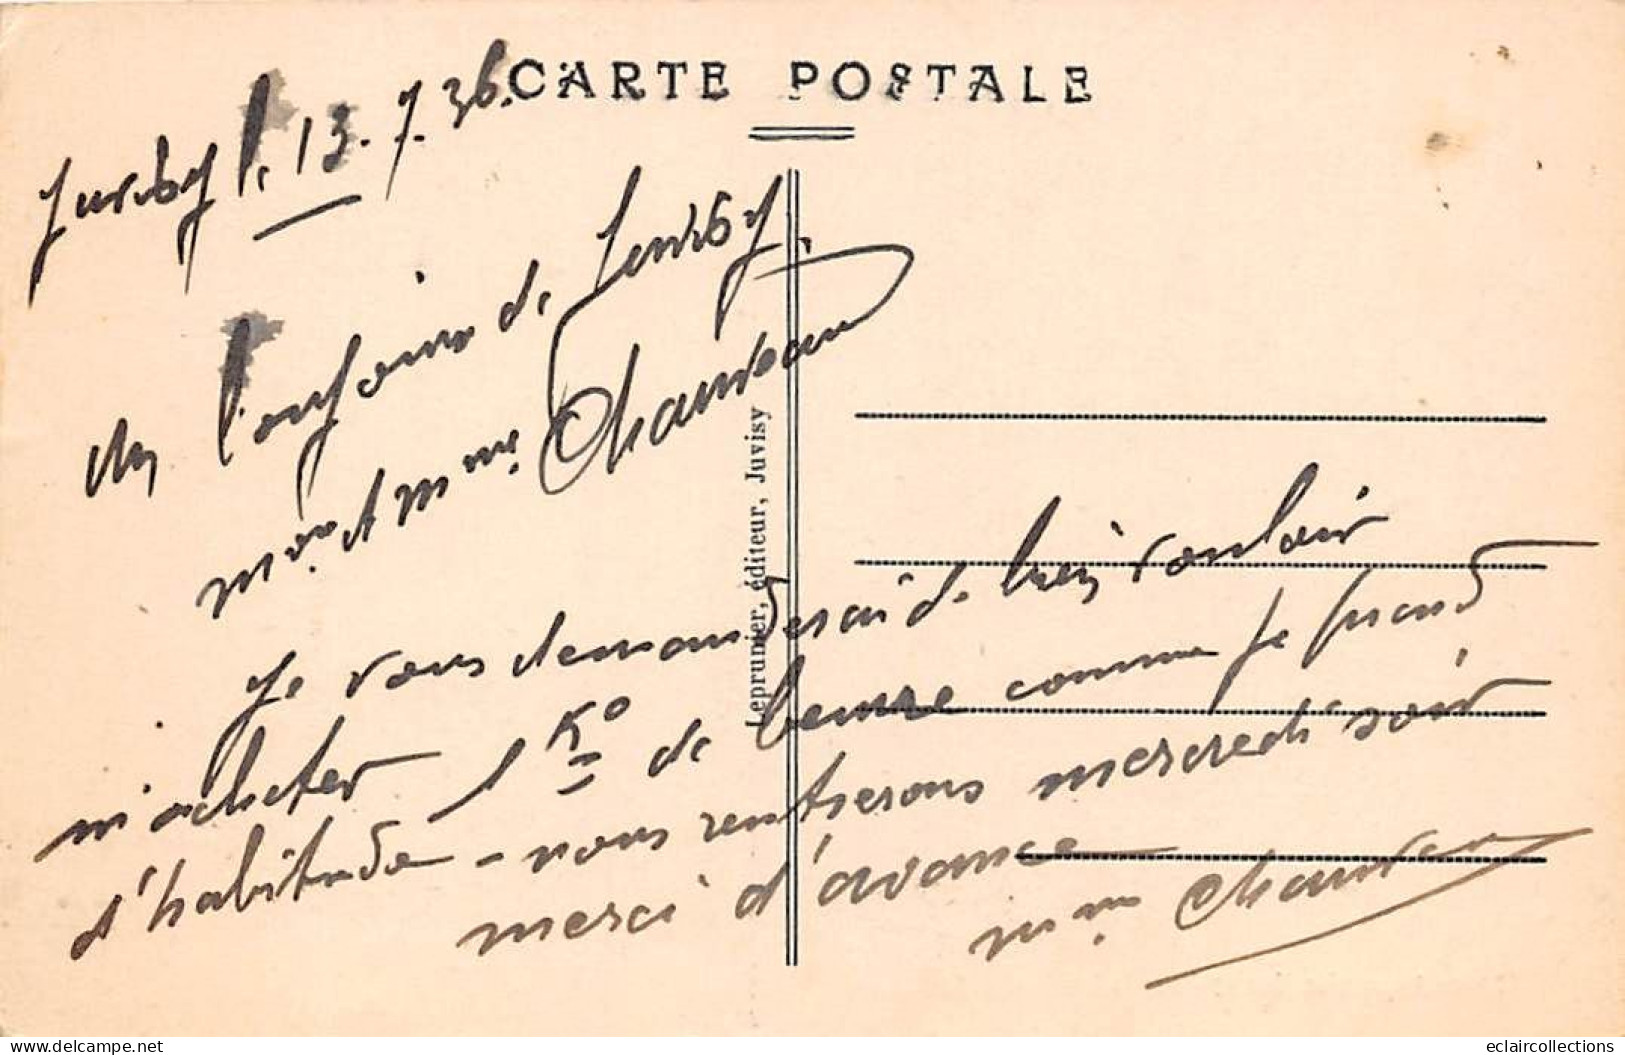 CARTE POSTALE
Juvisy le 13.7.36.
Un bonjour de Juvisy.
Mr et Mme Chauveau
Je vous demanderai de bien vouloir
m'acheter 1 Ko de beurre comme je prend
d'habitude - nous rentrerons mercredi soir
merci d'avance
Mme Chauveau
Leprunier, éditeur, Juvisy
delcampe.net
eclaircollections